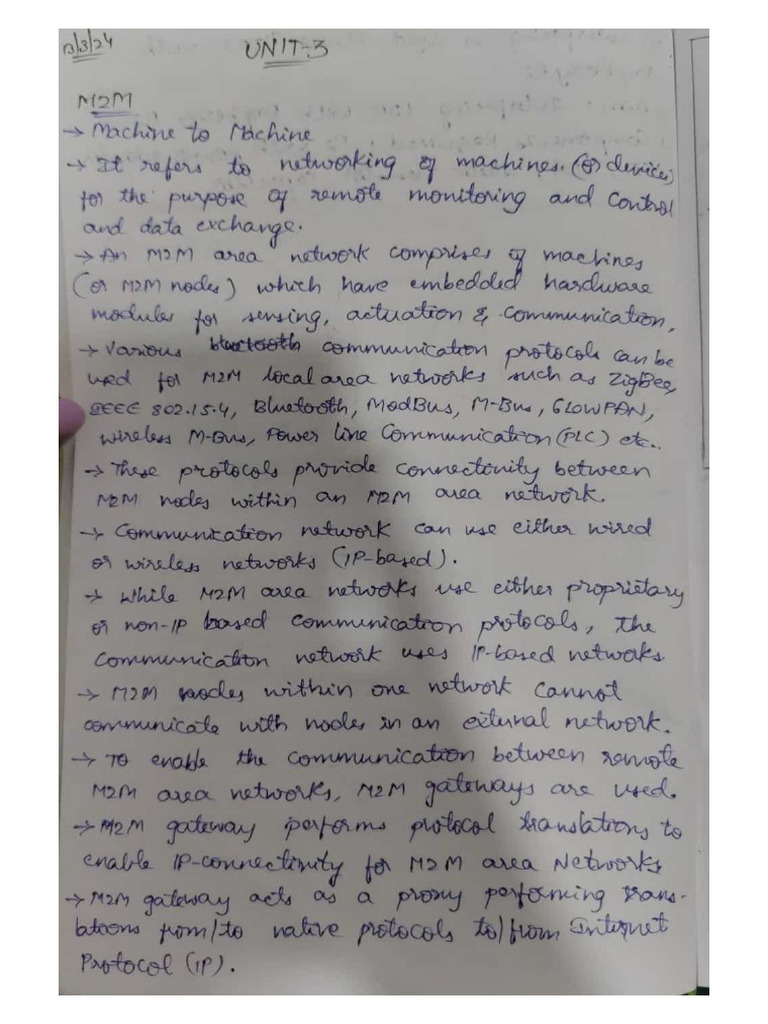 13/3/24
UNIT-3
M2M
→ Machine to Machine
→ It refers to networking of machines. (or devices)
for the purpose of remote monitoring and control
and data exchange.
→ An M2M area network comprises of machines
(or M2M nodes) which have embedded hardware
modules for sensing, actuation & communication,
→ Various bluetooth communication protocols can be
used for M2M local area networks such as ZigBee,
IEEE 802.15.4, Bluetooth, ModBus, M-Bus, 6LOWPAN,
wireless M-Bus, Power line Communication (PLC) etc..
→ These protocols provide connectivity between
M2M nodes within an M2M area network.
→ Communication network can use either wired
or wireless networks (IP-based).
→ While M2M area networks use either proprietary
or non-IP based communication protocols, the
communication network uses IP-based networks
→ M2M nodes within one network cannot
communicate with nodes in an external network.
→ To enable the communication between remote
M2M area networks, M2M gateways are used.
→ M2M gateway performs protocol translations to
enable IP-connectivity for M2M area Networks
→ M2M gateway acts as a proxy performing trans-
lations from/to native protocols to/from Internet
Protocol (IP).